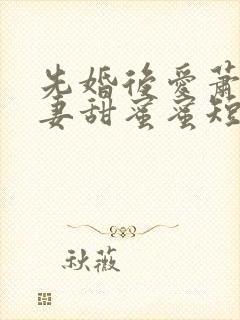 先婚後愛蕭
妻甜蜜蜜短
秋薇